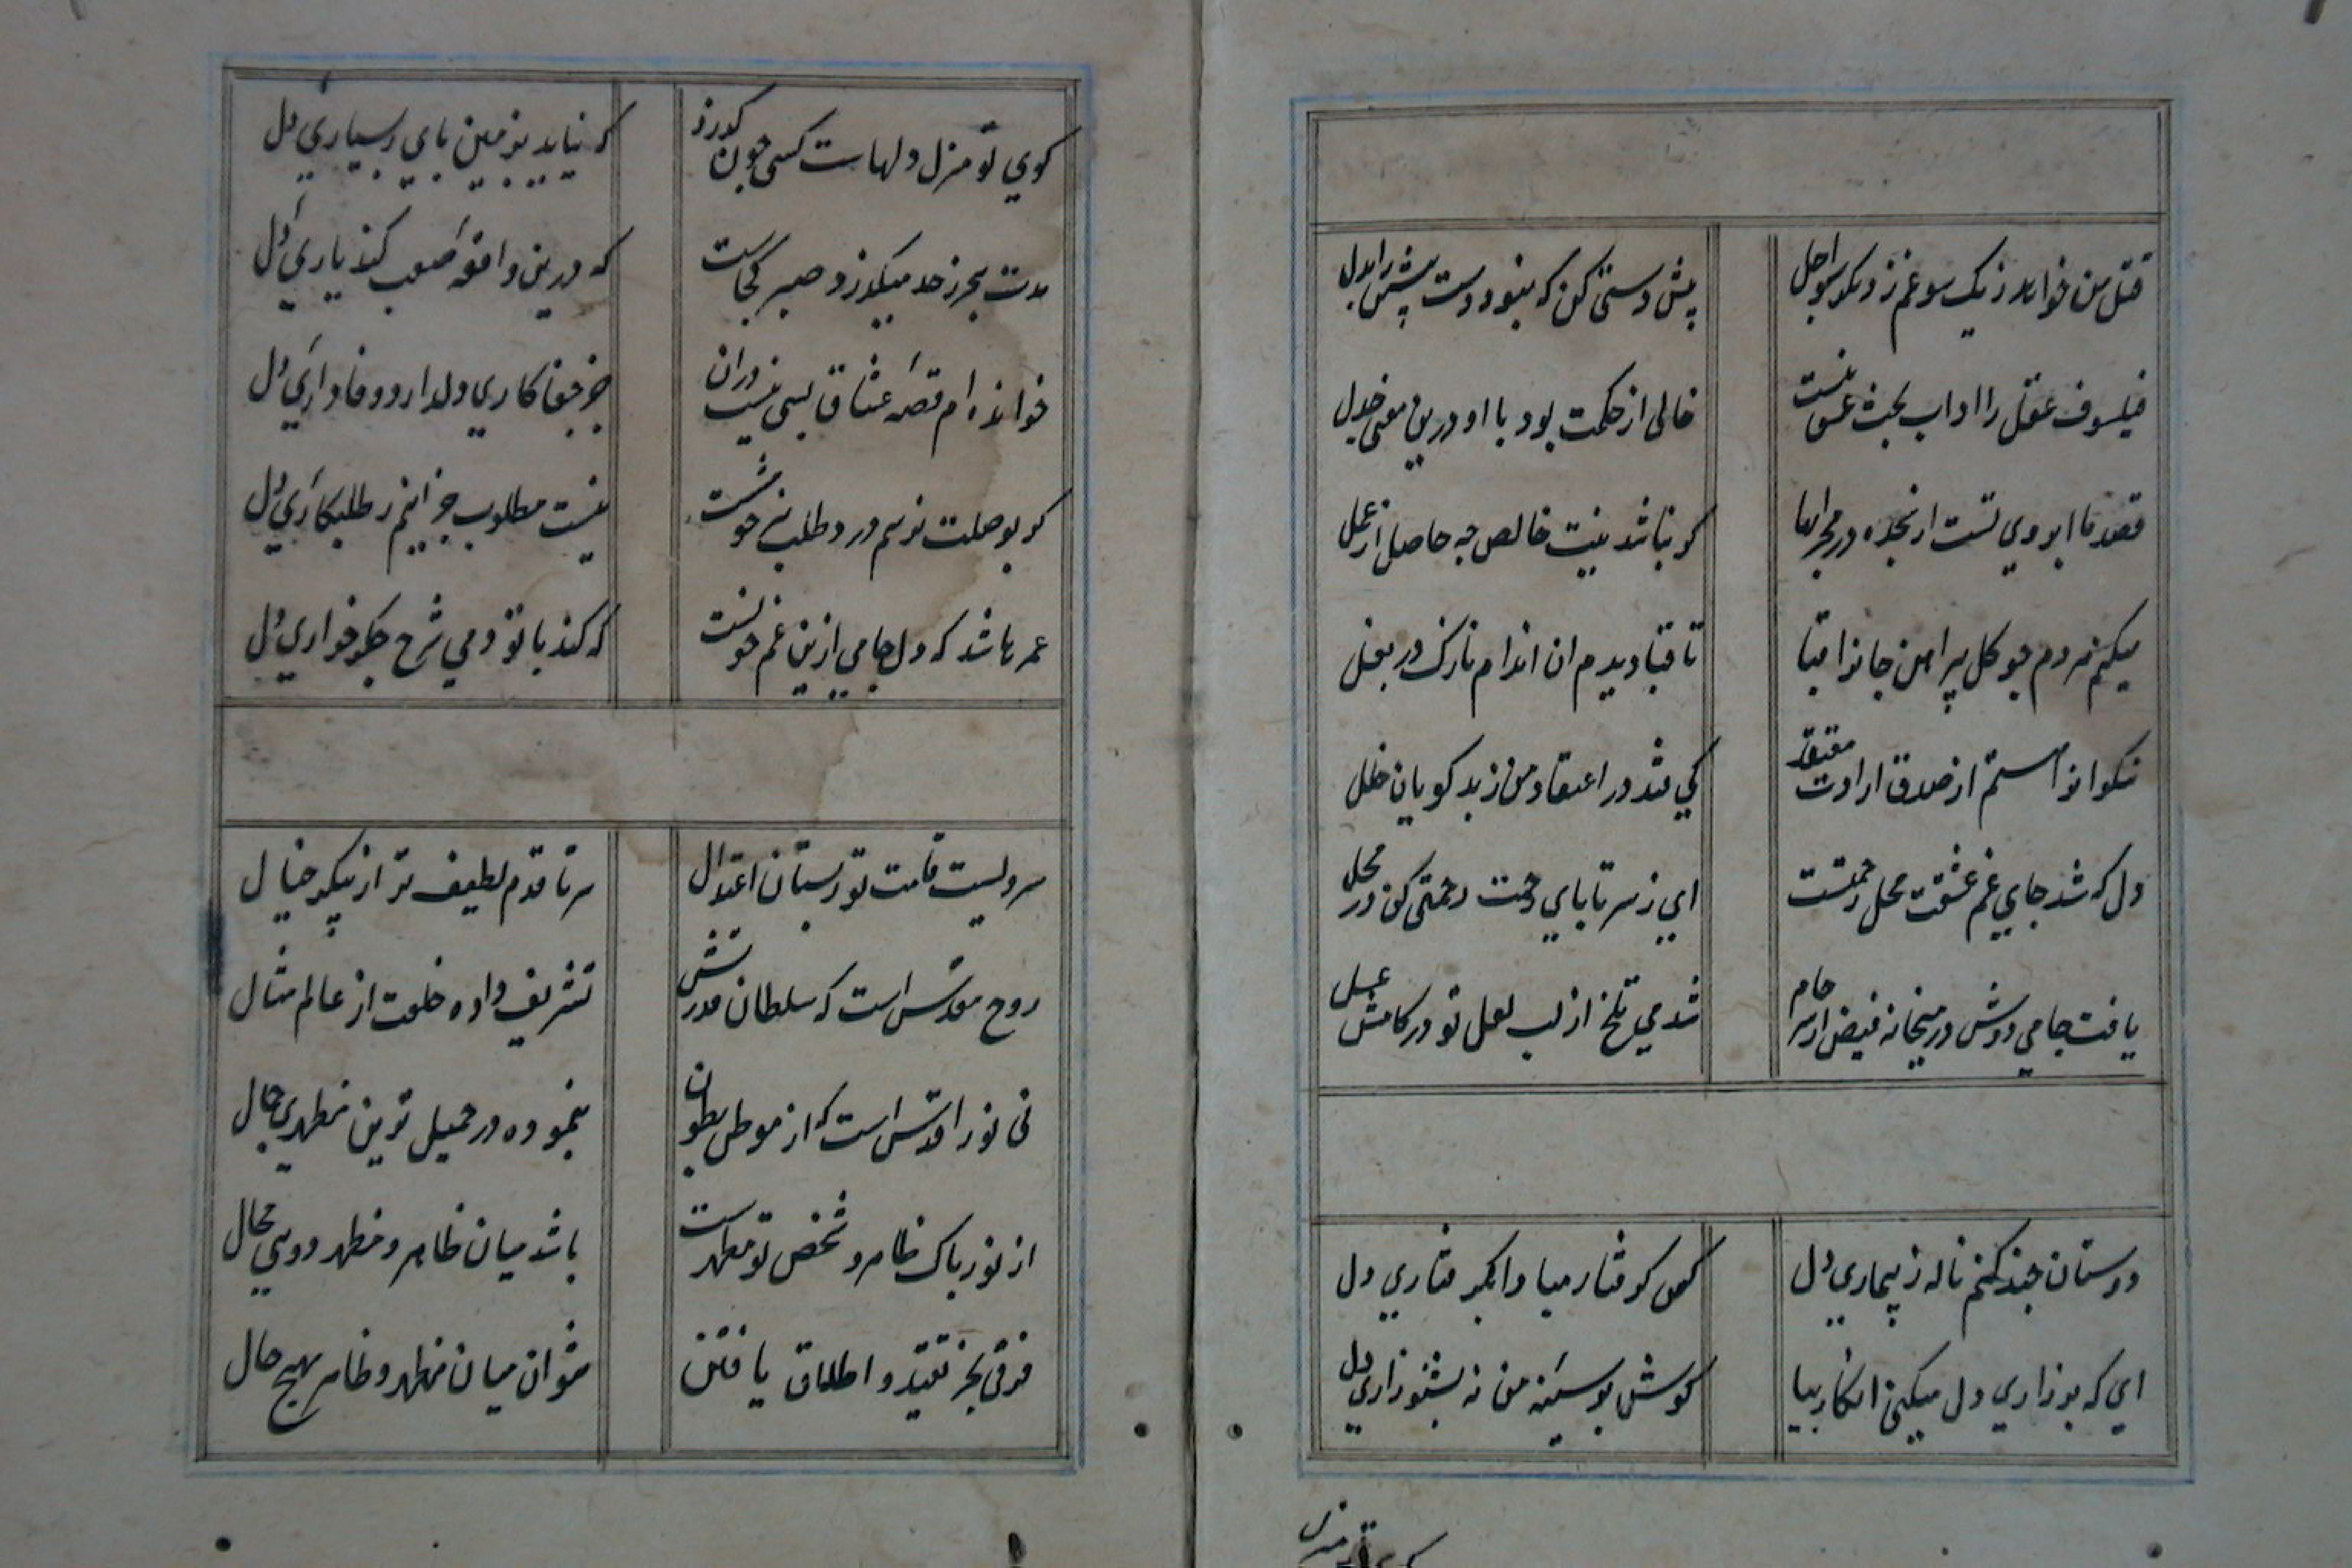 قتل من خواهد ز یک سو غم ز دیگر سو اجل
پیش دستی کن که نبود دست پیشین را بدل
فیلسوف عقل را اداب بحث عشق نیست
خالی از حکمت بود با او درین معنی جدل
قصد ما ابروی تست از سجده در محرابها
کر نباشد نیت خالص چه حاصل از عمل
میکنم هر دم چو کل پیراهن جانرا قبا
تا قبا دیدم ان اندام نازک در بغل
نیکوانرا هستم از صدق ارادت معتقد
کی فتد در اعتقاد من ز بد کویان خلل
دل که شد جای غم عشقت محل رحمتست
ای ز سر تا پای رحمت رحمتی کن در محل
یافت جامی دوش در میخانه فیض از سر جام
شد می تلخ از لب لعل تو در کامش عسل
دوستان چند کنم ناله ز بیماری دل
کس کرفتار مبادا بکرفتاری دل
ای که بر زاری دل میکنی انکار بیا
کوش بر سینه من نه بشنو زاری دل
کوی تو منزل دلهاست کسی چون کذرد
که نیاید بزمین پای ز بسیاری دل
مدت هجر ز حد میکذرد صبر کجاست
که درین واقعه صعب کند یاری دل
خوانده ام قصه عشاق بسی نیست دران
جز جفا کاری دلدار و وفاداری دل
کر بوصلت نرسم درد طلب نیز خوشست
نیست مطلوب جز اینم ز طلبکاری دل
عمرها شد که دل جامی ازین غم خونست
که کند با تو دمی شرح جکرخواری دل
سرویست قامت تو ز بستان اعتدال
سر تا قدم لطیف تر از پیکر خیال
روح مقدس است که سلطان قدرتش
تشریف داده خلعت از عالم مثال
نی نور اقدس است که از موطن بطون
بنموده در جمیل ترین مظهری جمال
از نور پاک ظاهر و شخص تو مظهرست
باشد میان ظاهر و مظهر دویی محال
فرقی بجز تقید و اطلاق یافتن
نتوان میان مظهر و ظاهر بهیچ حال